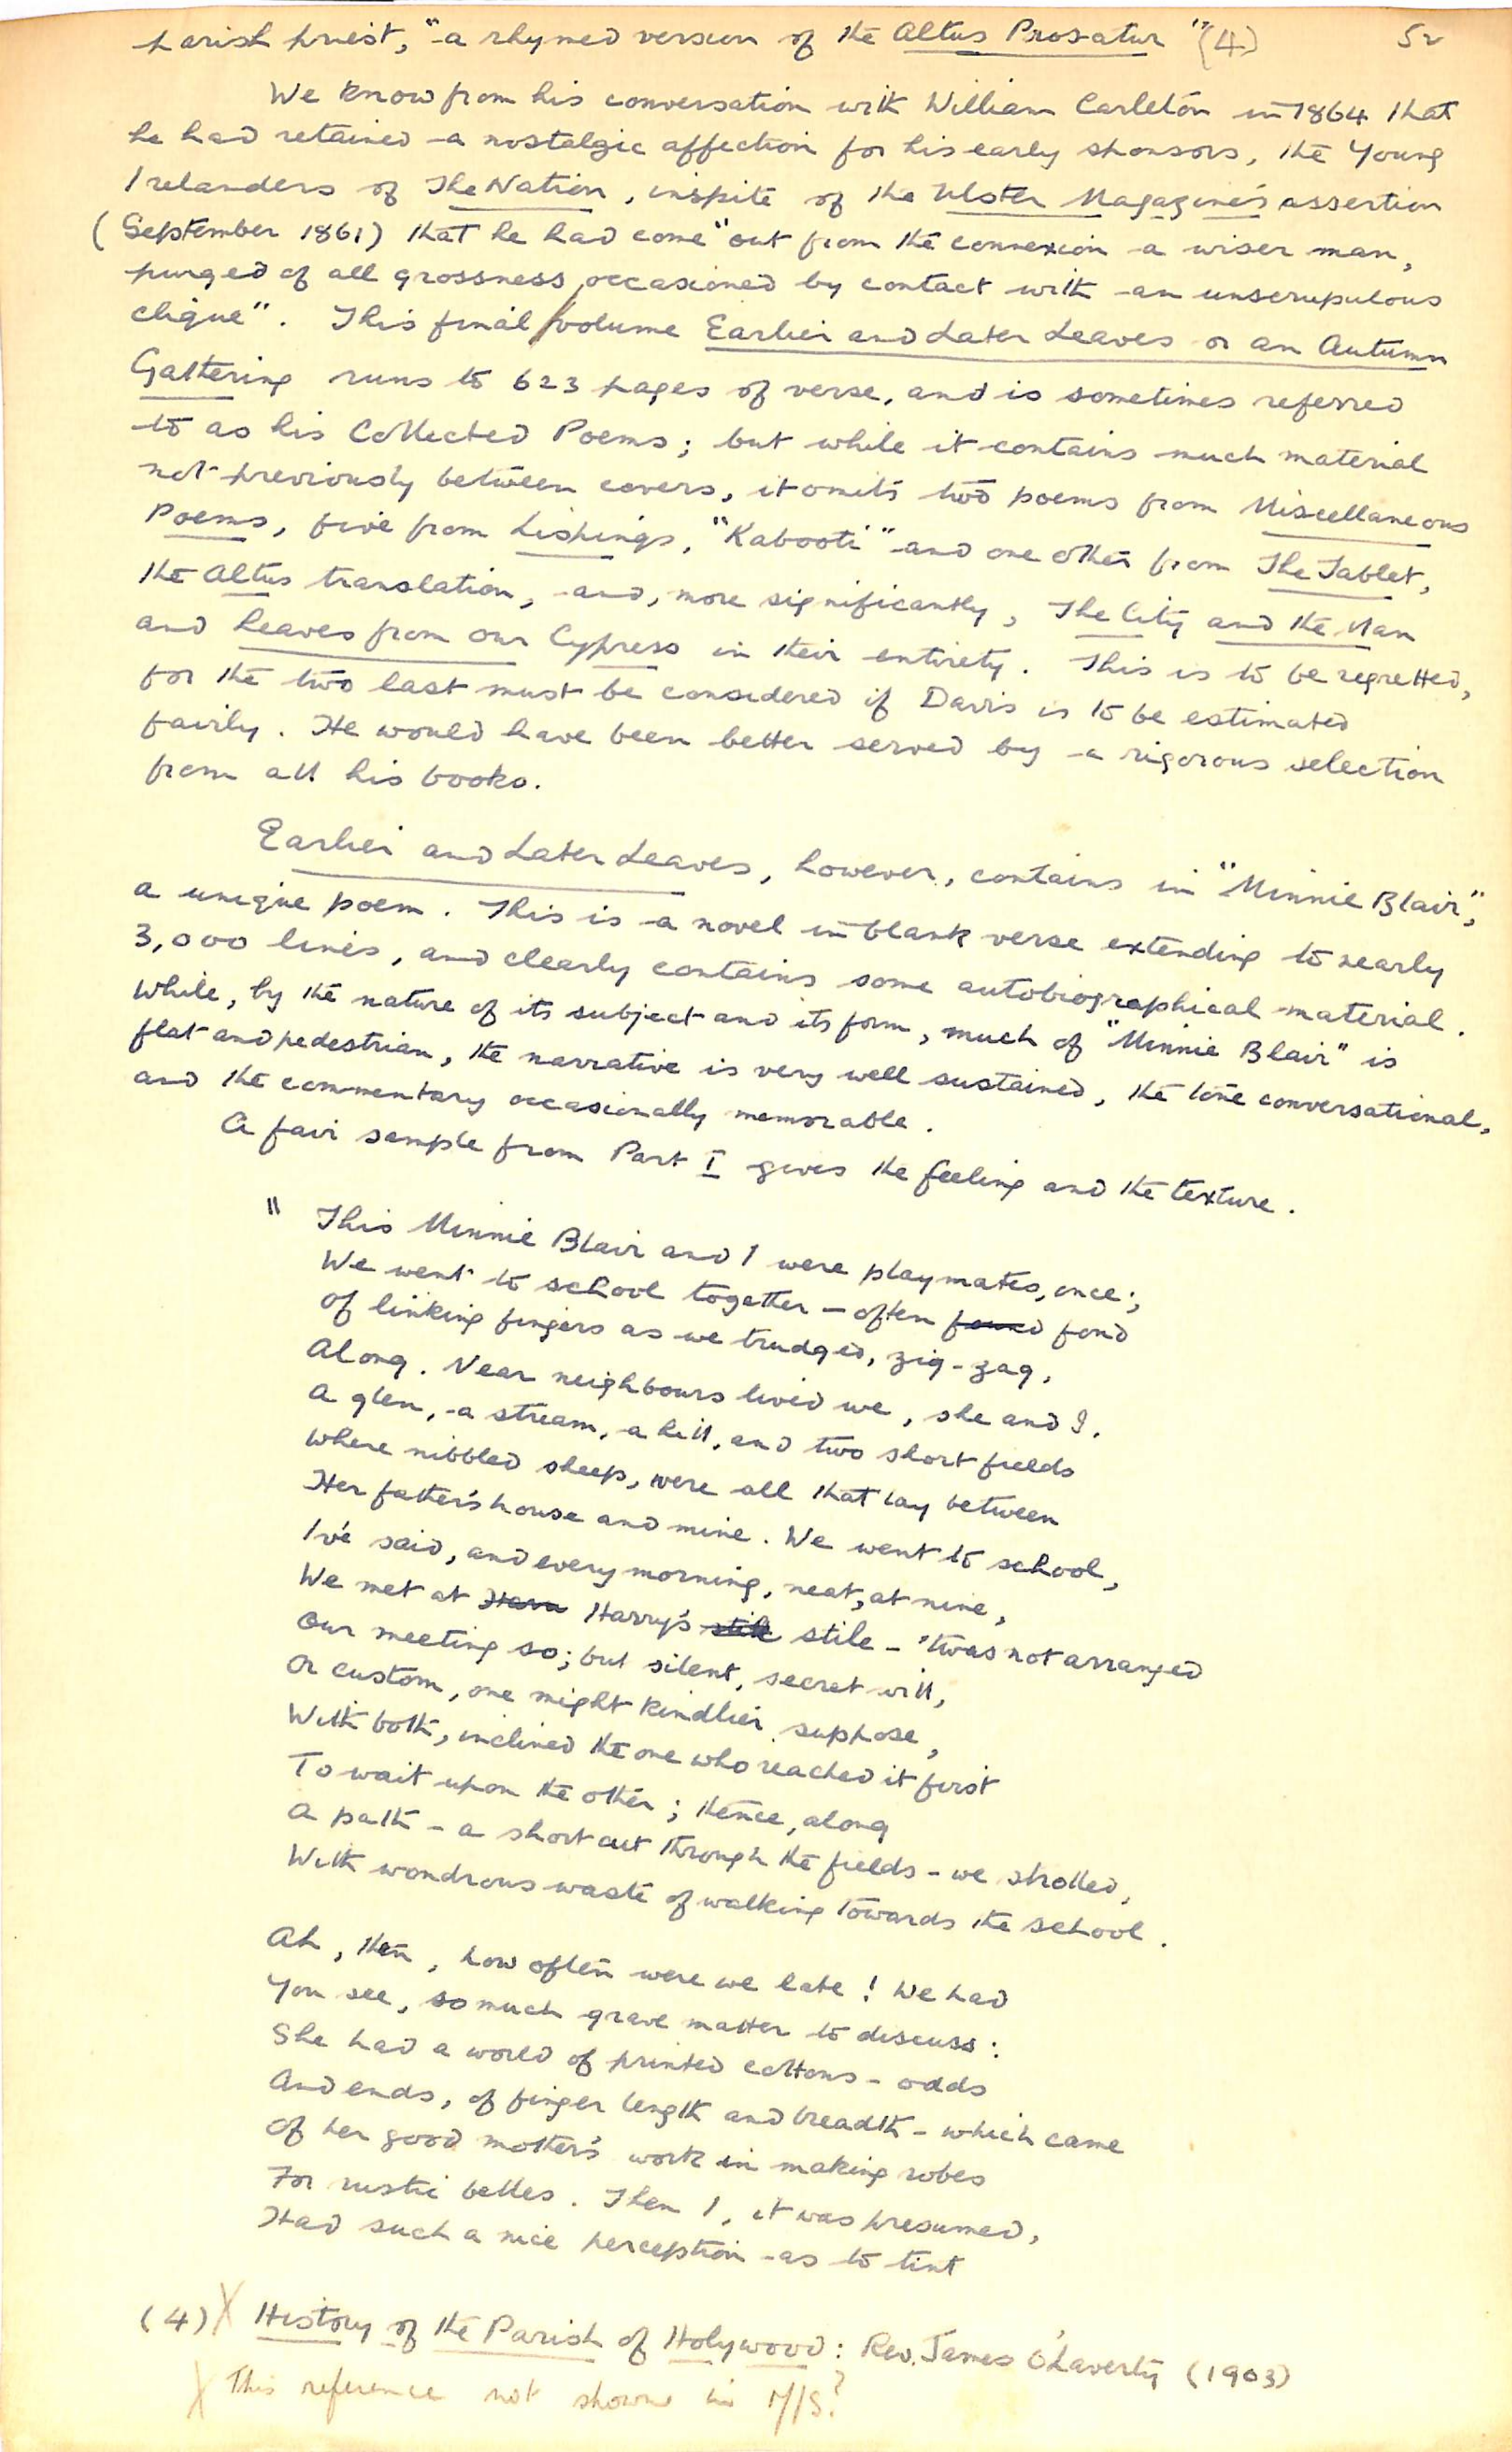 parish priest, "a rhymed version of the Altus Prosatur" (4)
We know from his conversation with William Carleton in 1864 that
he had retained a nostalgic affection for his early sponsors, the Young
Irelanders of The Nation, inspite of the Ulster Magazine's assertion
(September 1861) that he had come "out from the connexion a wiser man,
purged of all grossness occasioned by contact with an unscrupulous
clique". This final volume Earlier and Later Leaves or an Autumn
Gathering runs to 623 pages of verse, and is sometimes referred
to as his Collected Poems; but while it contains much material
not previously between covers, it omits two poems from Miscellaneous
Poems, five from Lispings, "Kabooti" and one other from The Tablet,
the Altus translation, and, more significantly, The City and the Man
and Leaves from our Cypress in their entirety. This is to be regretted,
for the two last must be considered if Davis is to be estimated
fairly. He would have been better served by a rigorous selection
from all his books.
Earlier and Later Leaves, however, contains in "Minnie Blair",
a unique poem. This is a novel in blank verse extending to nearly
3,000 lines, and clearly contains some autobiographical material.
While, by the nature of its subject and its form, much of "Minnie Blair" is
flat and pedestrian, the narrative is very well sustained, the tone conversational,
and the commentary occasionally memorable.
A fair sample from Part I gives the feeling and the texture.
" This Minnie Blair and I were playmates, once;
We went to school together – often found fond
Of linking fingers as we trudged, zig-zag,
Along. Near neighbours lived we, she and I.
A glen, a stream, a hill, and two short fields
Where nibbled sheep, were all that lay between
Her father's house and mine. We went to school,
I've said, and every morning, neat, at nine,
We met at Harry's stile – 'twas not arranged
Our meeting so; but silent, secret will,
Or custom, one might kindlier suppose,
With both, inclined the one who reached it first
To wait upon the other; thence, along
A path – a short cut through the fields – we strolled,
With wondrous waste of walking towards the school.
Ah, then, how often were we late! We had
You see, so much grave matter to discuss:
She had a world of printed cottons – odds
And ends, of finger length and breadth – which came
Of her good mother's work in making robes
For rustic belles. Then I, it was presumed,
Had such a nice perception as to tint
(4) X History of the Parish of Holywood: Rev. James O'Laverty (1903)
X This reference not shown in M/S?
5v